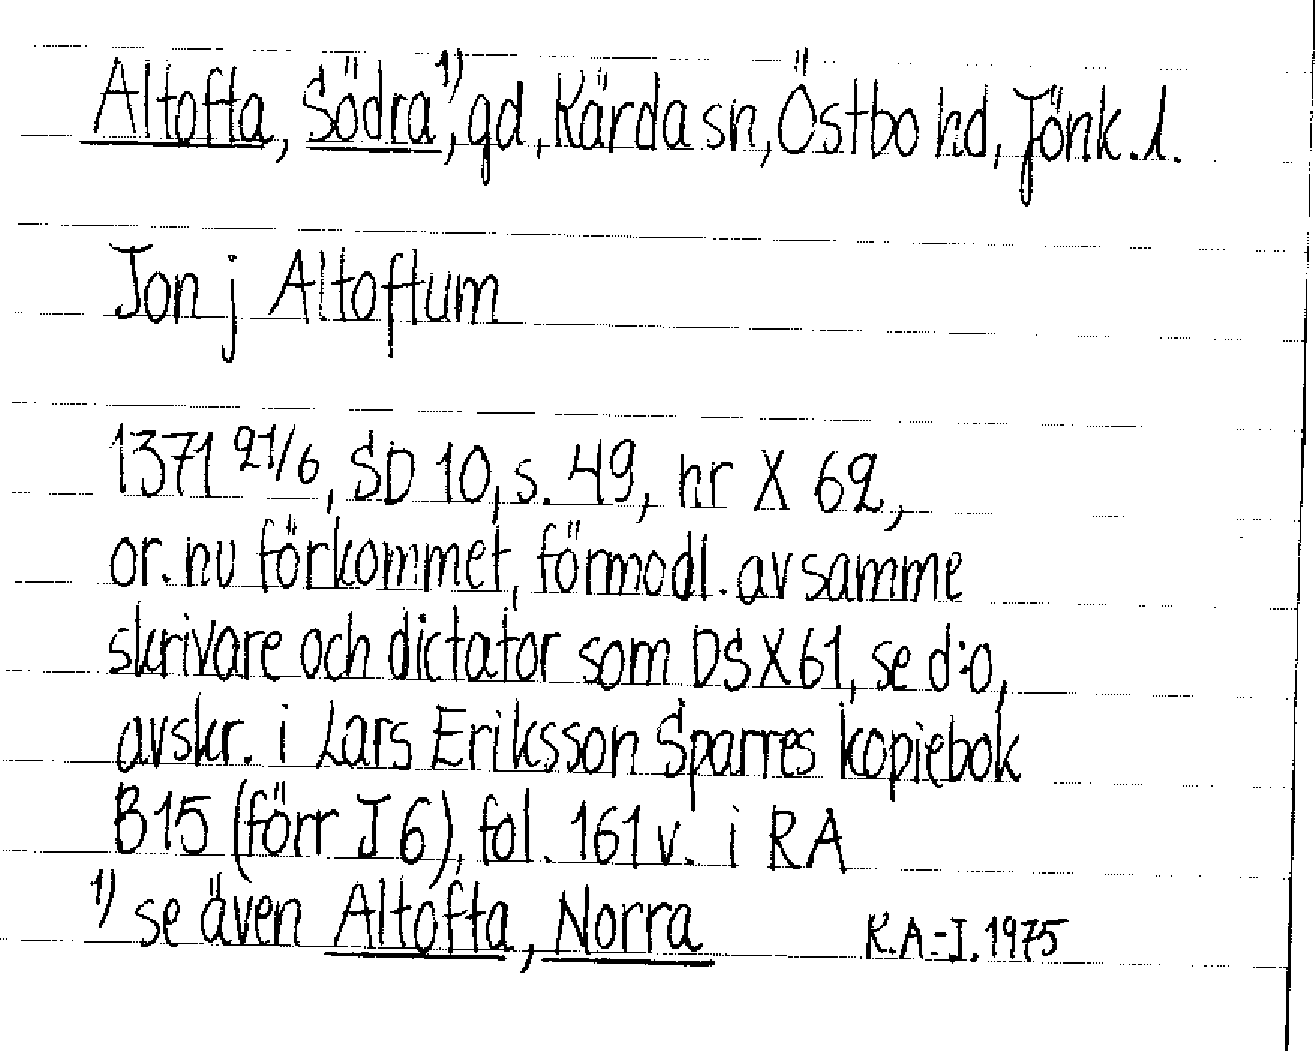 Altofta, Södra¹⁾, gd, Kärda sn, Östbo hd, Jönk. l.
Jon j Altoftum
1371 21/6, SD 10, s. 49, nr X 62,
or. nu förkommet, förmodl. av samme
skrivare och dictator som DS X 61, se d:o,
avskr. i Lars Eriksson Sparres kopiebok
B 15 (förr I 6), fol. 161 v. i RA
¹⁾ se även Altofta, Norra K.A-I. 1975